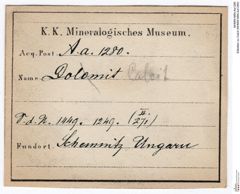 K. K. Mineralogisches Museum.
Acq. Post A.a. 1280.
Name Dolomit Calcit
F. d. N. 1449. 1249. (II./271)
Fundort. Schemnitz Ungarn